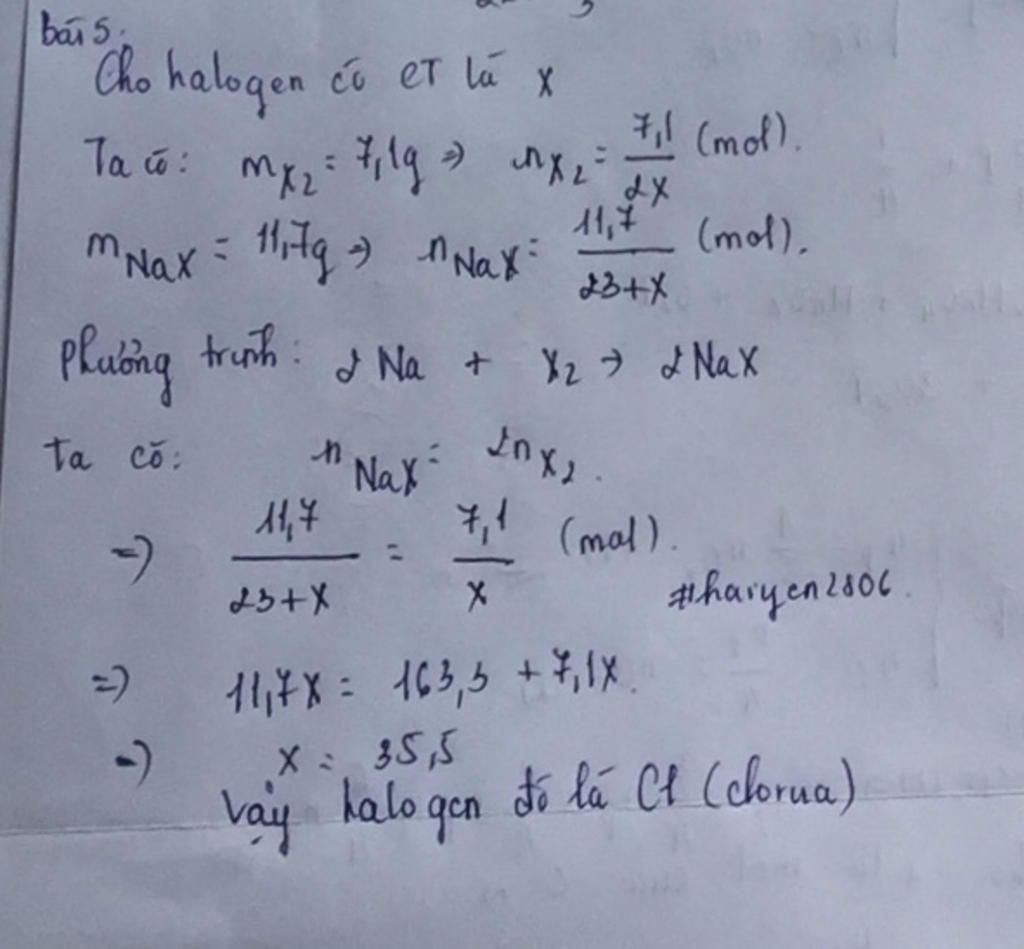 bài 5.
Cho halogen có CT là X
Ta có: m X₂ = 7,1g => n X₂ = 7,1/2X (mol).
m NaX = 11,7g => n NaX = 11,7/23+X (mol).
Phương trình: 2 Na + X₂ → 2 NaX
Ta có: n NaX = 2n X₂.
=> 11,7/23+X = 7,1/X (mol).
#haiyen2806.
=> 11,7X = 163,3 + 7,1X.
=> X = 35,5
Vậy halogen đó là Cl (clorua)